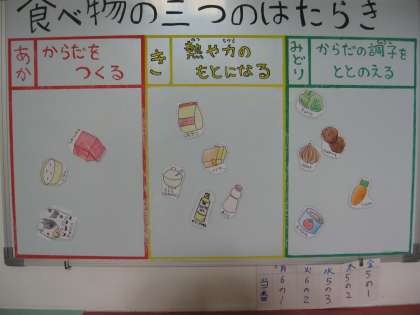 食べ物の三つのはたらき
あか
からだを
つくる
きい
熱や力の
もとになる
みどり
からだの調子を
ととのえる
月 6の1
火 6の2
水 5の3
木 5の2
金 5の1